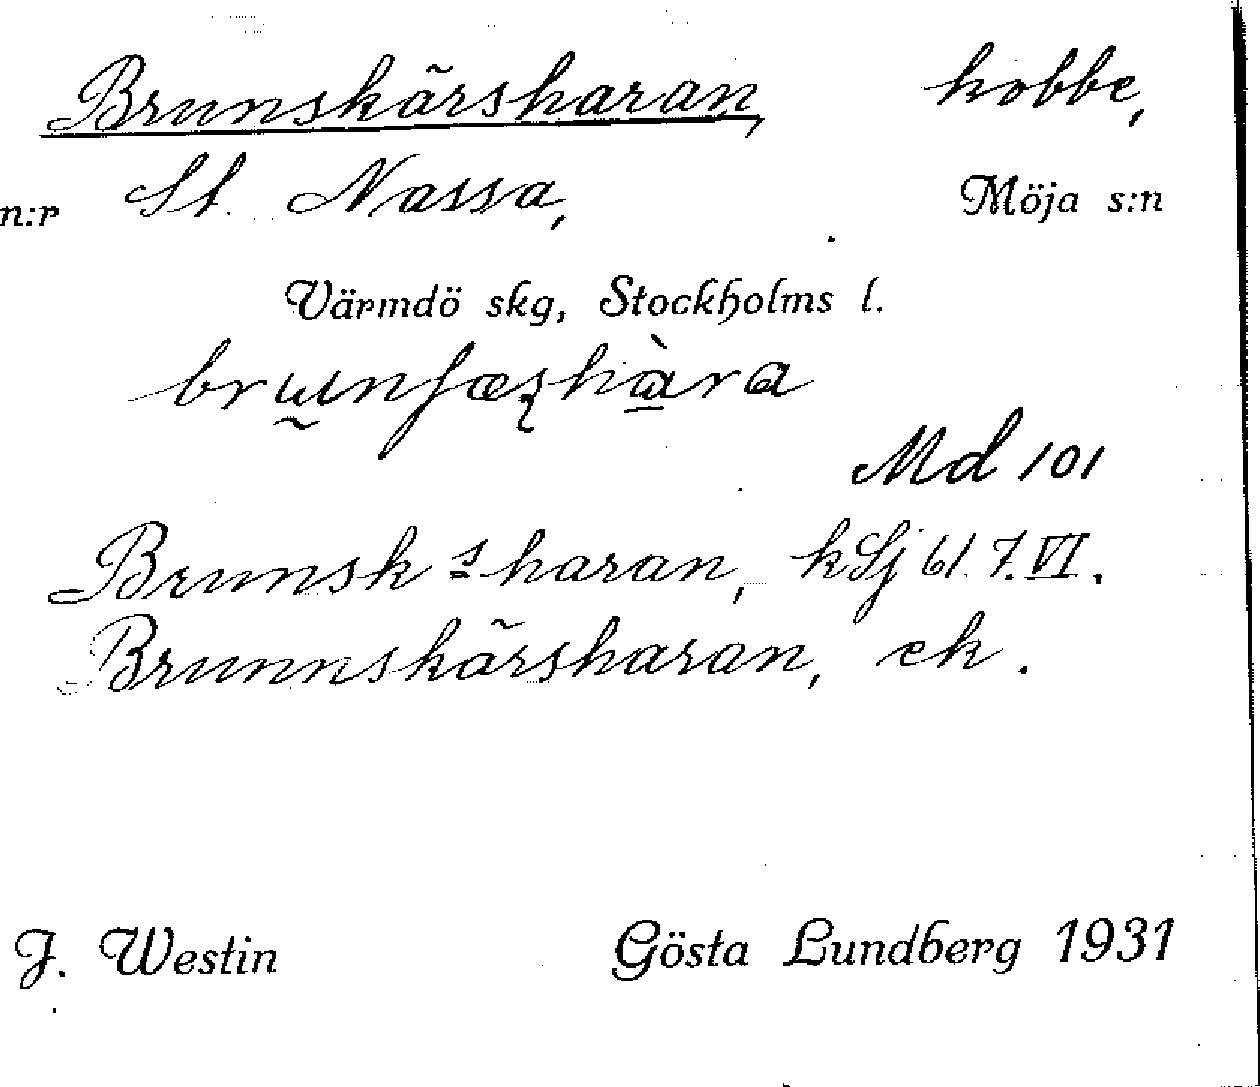 Brunskärsharan, kobbe,
n:r St. Nassa, Möja s:n
Värmdö skg, Stockholms l.
Md 101
Brunsk s haran, kSj 61. 7. VI.
Brunnskärsharan, ek.
J. Westin Gösta Lundberg 1931